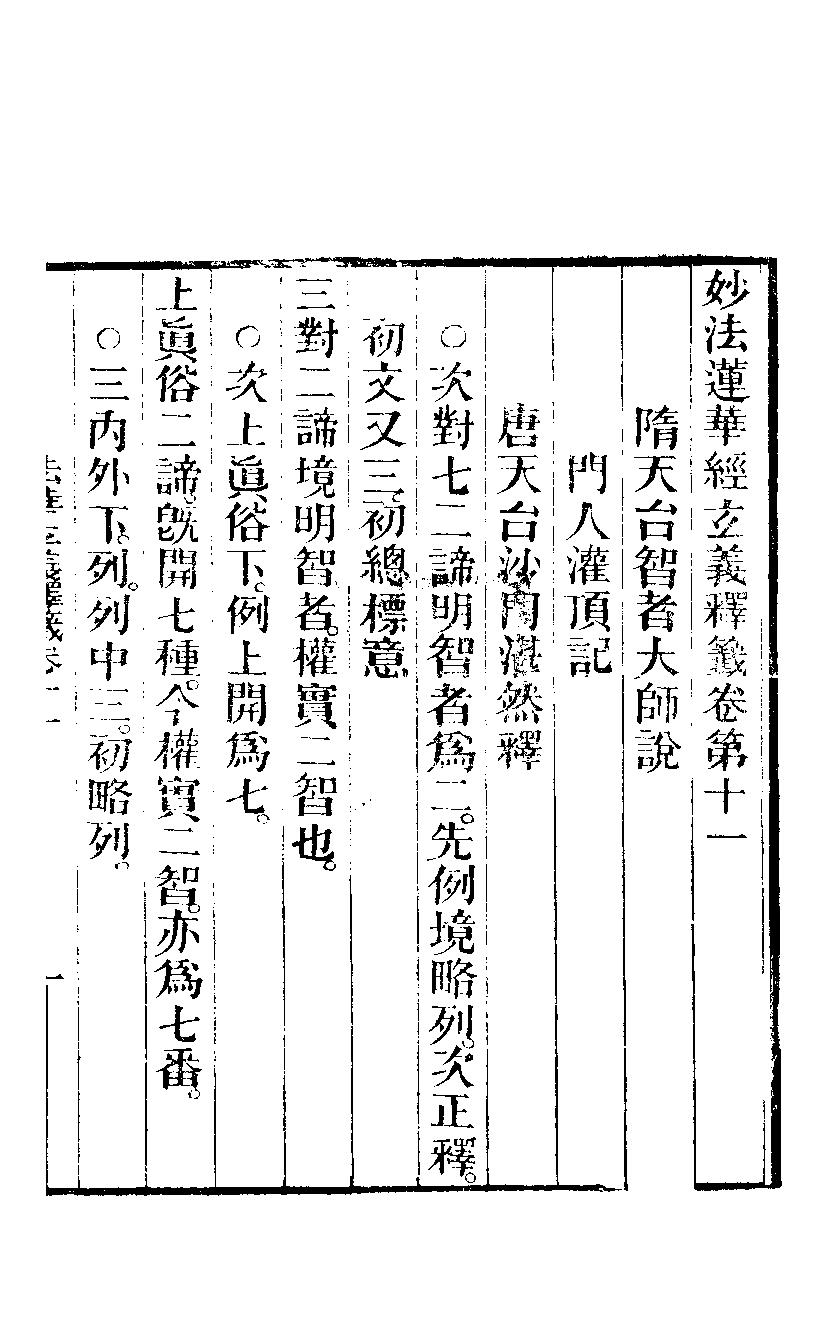 妙法蓮華經玄義釋籤卷第十一
隋天台智者大師說
門人灌頂記
唐天台沙門湛然釋
○次對七二諦明智者爲二。先例境略列。次正釋。
初文又三。初總標意
三對二諦境明智者。權實二智也。
○次上眞俗下。例上開爲七。
上眞俗二諦。旣開七種。今權實二智。亦爲七番。
○三內外下。列。列中三。初略列。
法華玄義釋籤卷十一 一